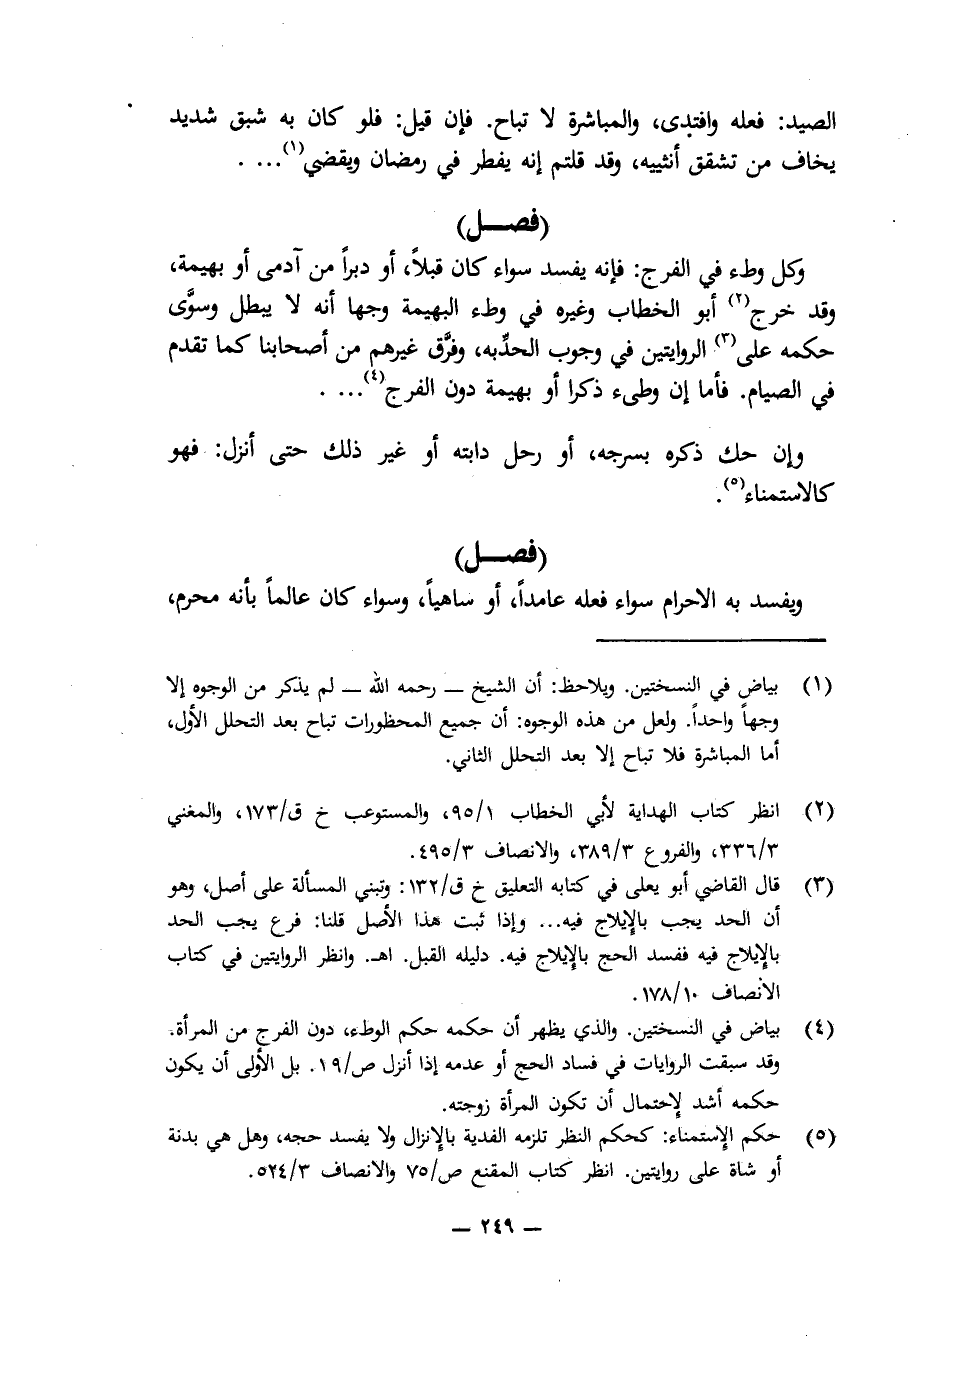 الصيد: فعله وافتدى، والمباشرة لا تباح. فإن قيل: فلو كان به شبق شديد
يخاف من تشقق أنثييه، وقد قلتم إنه يفطر في رمضان ويقضي(١)... .
(فصــل)
وكل وطء في الفرج: فإنه يفسد سواء كان قبلاً، أو دبراً من آدمى أو بهيمة،
وقد خرج(٢) أبو الخطاب وغيره في وطء البهيمة وجها أنه لا يبطل وسوَّى
حكمه على(٣) الروايتين في وجوب الحدِّبه، وفرَّق غيرهم من أصحابنا كما تقدم
في الصيام. فأما إن وطىء ذكرا أو بهيمة دون الفرج(٤)... .
وإن حك ذكره بسرجه، أو رحل دابته أو غير ذلك حتى أنزل: فهو
كالاستمناء(٥).
(فصــل)
ويفسد به الاحرام سواء فعله عامداً، أو ساهياً، وسواء كان عالماً بأنه محرم،
(١) بياض في النسختين. ويلاحظ: أن الشيخ — رحمه الله — لم يذكر من الوجوه إلا
وجهاً واحداً. ولعل من هذه الوجوه: أن جميع المحظورات تباح بعد التحلل الأول،
أما المباشرة فلا تباح إلا بعد التحلل الثاني.
(٢) انظر كتاب الهداية لأبي الخطاب ٩٥/١، والمستوعب خ ق/١٧٣، والمغني
٣٣٦/٣، والفروع ٣٨٩/٣، والانصاف ٤٩٥/٣.
(٣) قال القاضي أبو يعلى في كتابه التعليق خ ق/١٣٢: وتبني المسألة على أصل، وهو
أن الحد يجب بالإيلاج فيه... وإذا ثبت هذا الأصل قلنا: فرع يجب الحد
بالإيلاج فيه ففسد الحج بالإيلاج فيه. دليله القبل. اهـ. وانظر الروايتين في كتاب
الانصاف ١٧٨/١٠.
(٤) بياض في النسختين. والذي يظهر أن حكمه حكم الوطء، دون الفرج من المرأة.
وقد سبقت الروايات في فساد الحج أو عدمه إذا أنزل ص/١٩. بل الأولى أن يكون
حكمه أشد لإحتمال أن تكون المرأة زوجته.
(٥) حكم الإستمناء: كحكم النظر تلزمه الفدية بالإنزال ولا يفسد حجه، وهل هي بدنة
أو شاة على روايتين. انظر كتاب المقنع ص/٧٥ والانصاف ٥٢٤/٣.
— ٢٤٩ —